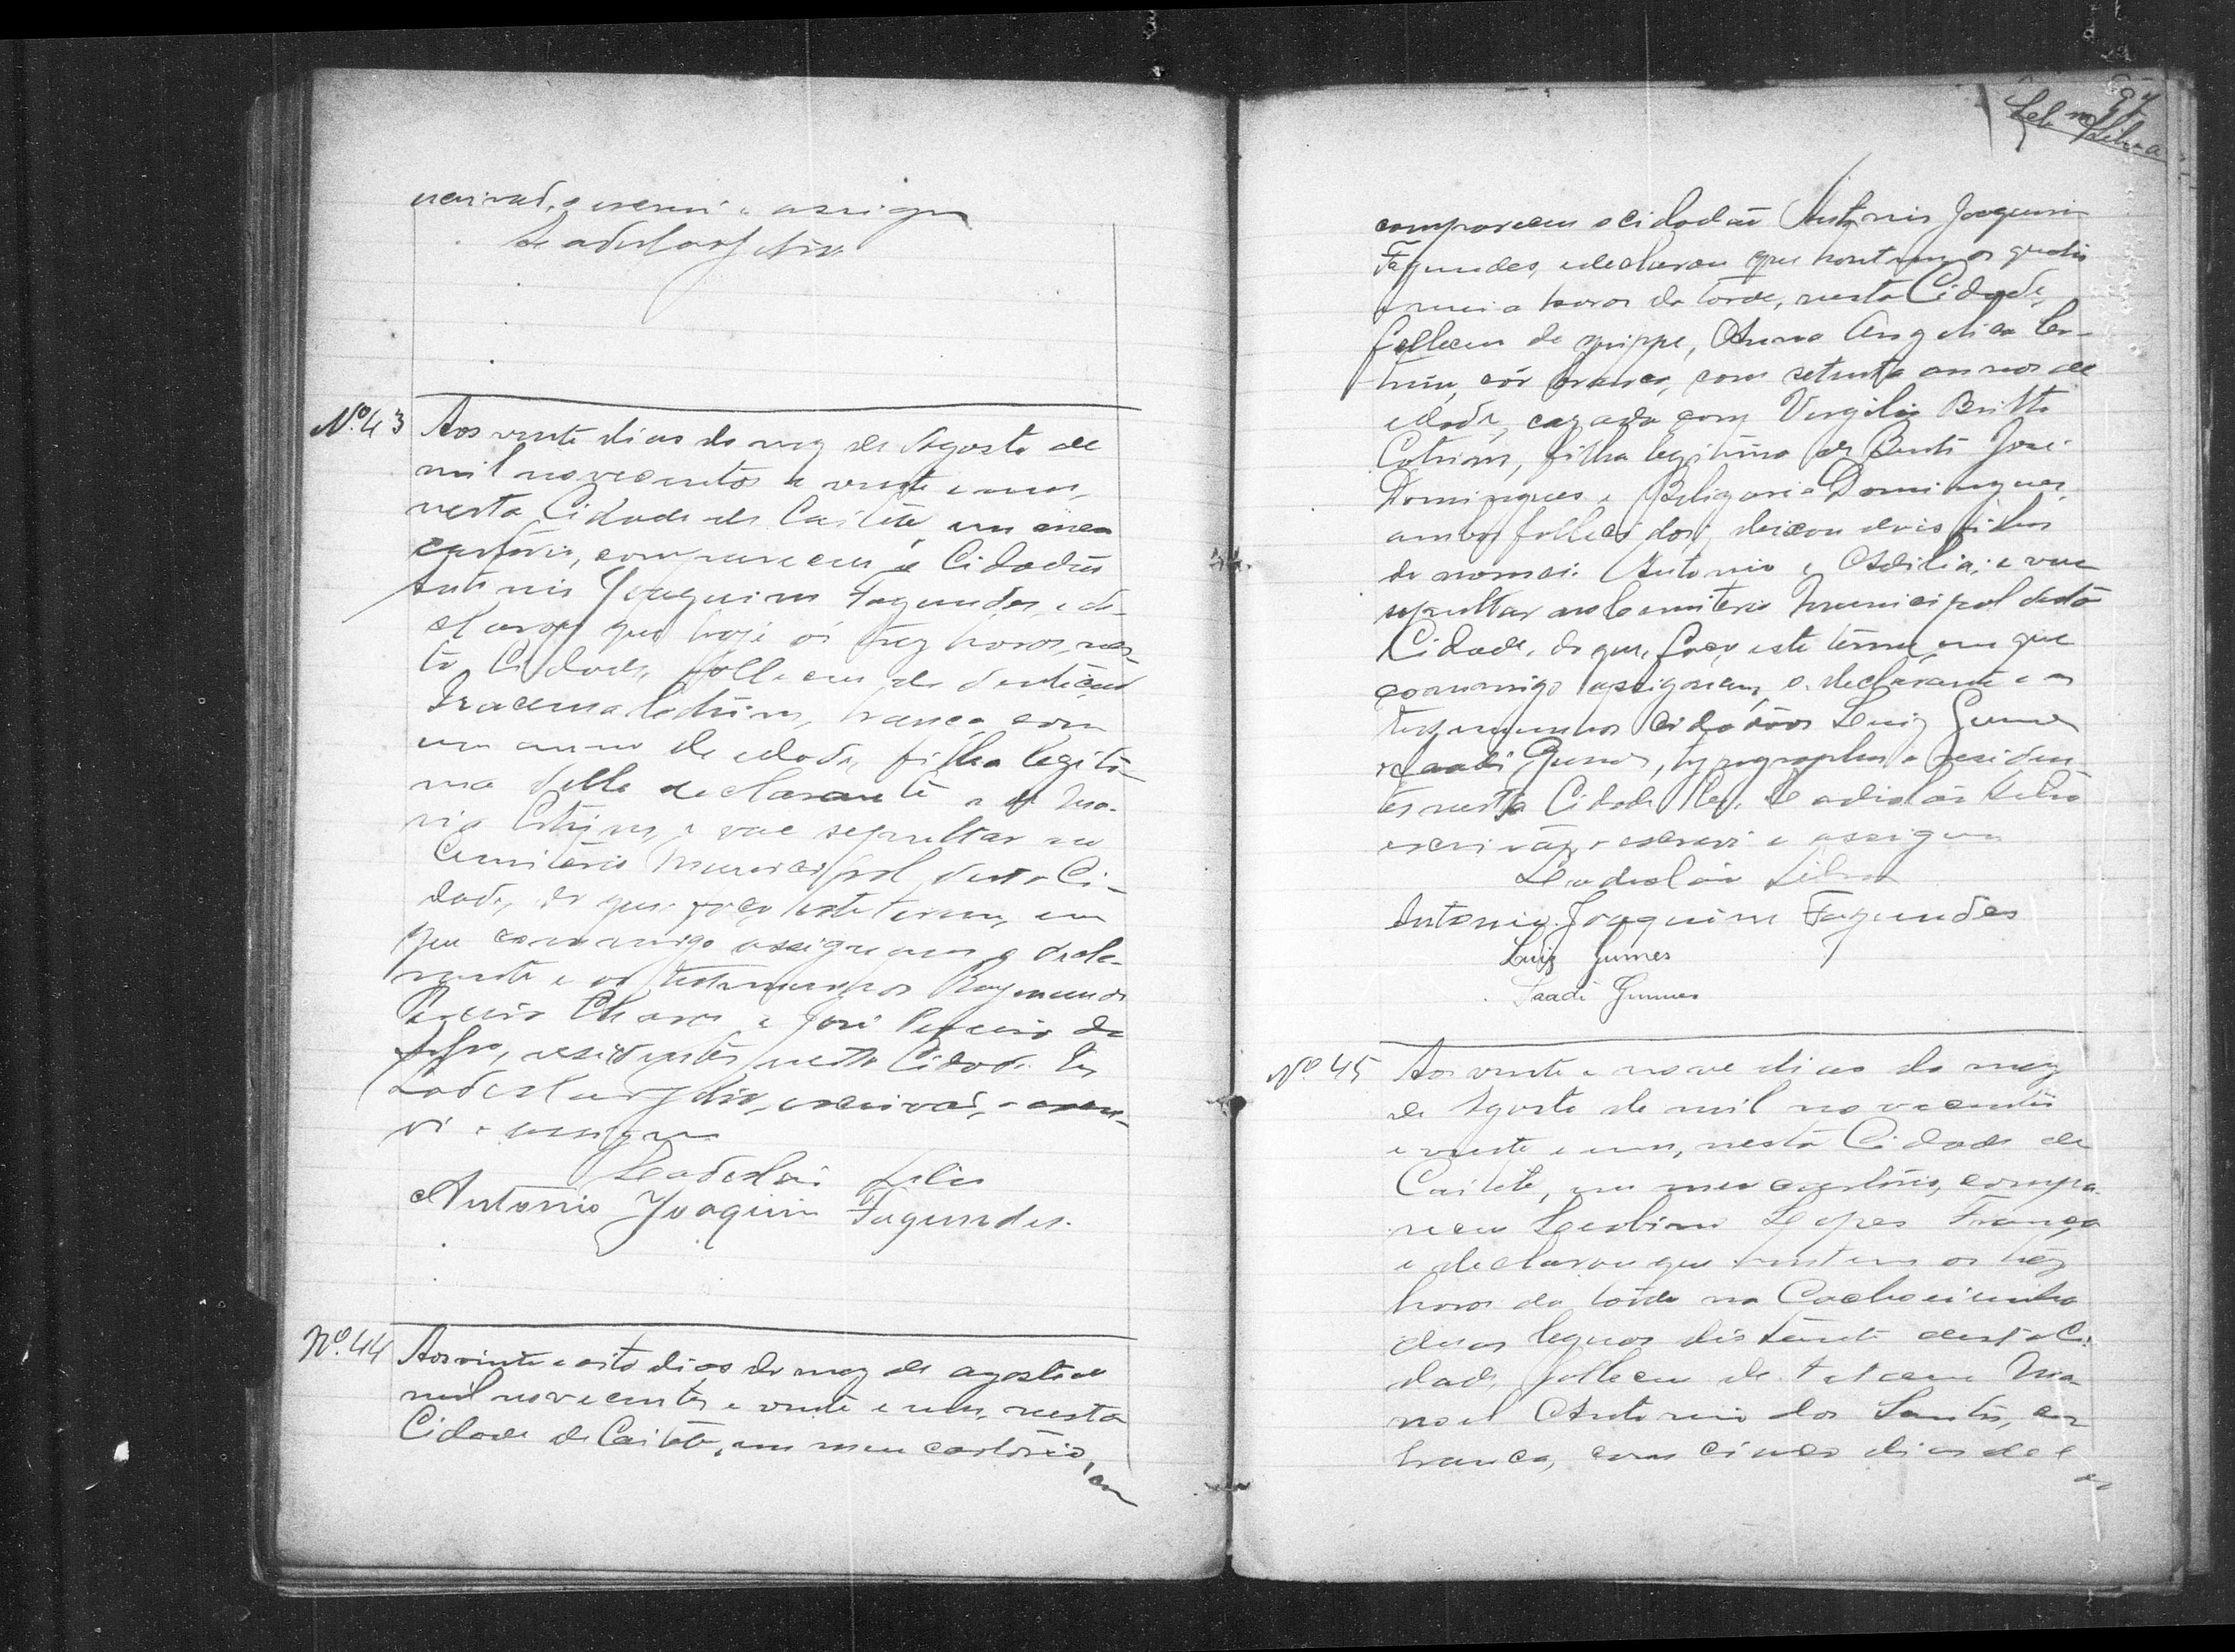 escrivão, o escrevi e assigno
Ladesláo Silva
Nº. 43
Aos vinte dias do mez de Agosto de
mil novecentos e vinte e um,
nesta Cidade de Caiteté, em meu
cartorio, compareceu o Cidadão
Antonio Joaquim Fagundes, e de-
clarou que hoje ás trez horas, nes-
ta Cidade, falleceu de dentição
Iracema Cotrim, branca, com
um anno de edade, filha legiti-
ma delle declarante e de Ma-
ria Cotrim, e vae sepultar no
Cemiterio Municipal desta Ci-
dade, do que, faço este termo, em
que commigo assignam o decla-
rante e as testemunhas Raymundo
Chaves e José da
Silva, residentes nesta Cidade. Eu
Ladesláo Silva, escrivão, o escre-
vi e assigno
Ladesláo Silva
Antonio Joaquim Fagundes.
Nº. 44
Aos vinte e oito dias do mez de agosto de
mil novecentos e vinte e um, nesta
Cidade de Caiteté, em meu cartorio,
97
Silva
compareceu o cidadão Antonio Joaquim
Fagundes, e declarou que hontem as quatro
e meia horas da tarde, nesta Cidade,
falleceu de grippe, Anna Angelica Co-
trim, côr branca, com setenta annos de
edade, cazada com Virgilio Britto
Cotrim, filha legitima de Bento José
Domingues e Domingues,
ambos fallecidos; deixou dois filhos
de nomes: Antonio e Adilia; e vae
sepultar no Cemiterio Municipal desta
Cidade, do que, faço este termo em que
commigo assignam, o declarante e as
testemunhas cidadãos Luiz Gumes
e Saadi Gumes, typographos e residen-
tes nesta Cidade. Eu, Ladesláo Silva
escrivão, o escrevi e assigno
Ladesláo Silva
Antonio Joaquim Fagundes
Luiz Gumes
Saadi Gumes
Nº. 45
Aos vinte e nove dias do mez
de Agosto de mil novecentos
e vinte e um, nesta Cidade de
Caiteté, em meu cartorio, compa-
receu Lopes França
e declarou que hontem as trez
horas da tarde na Cachoeirinha
duas leguas distante desta Ci-
dade, falleceu de tetano Ma-
noel Antonio dos Santos, cor
branca, com cinco dias de e